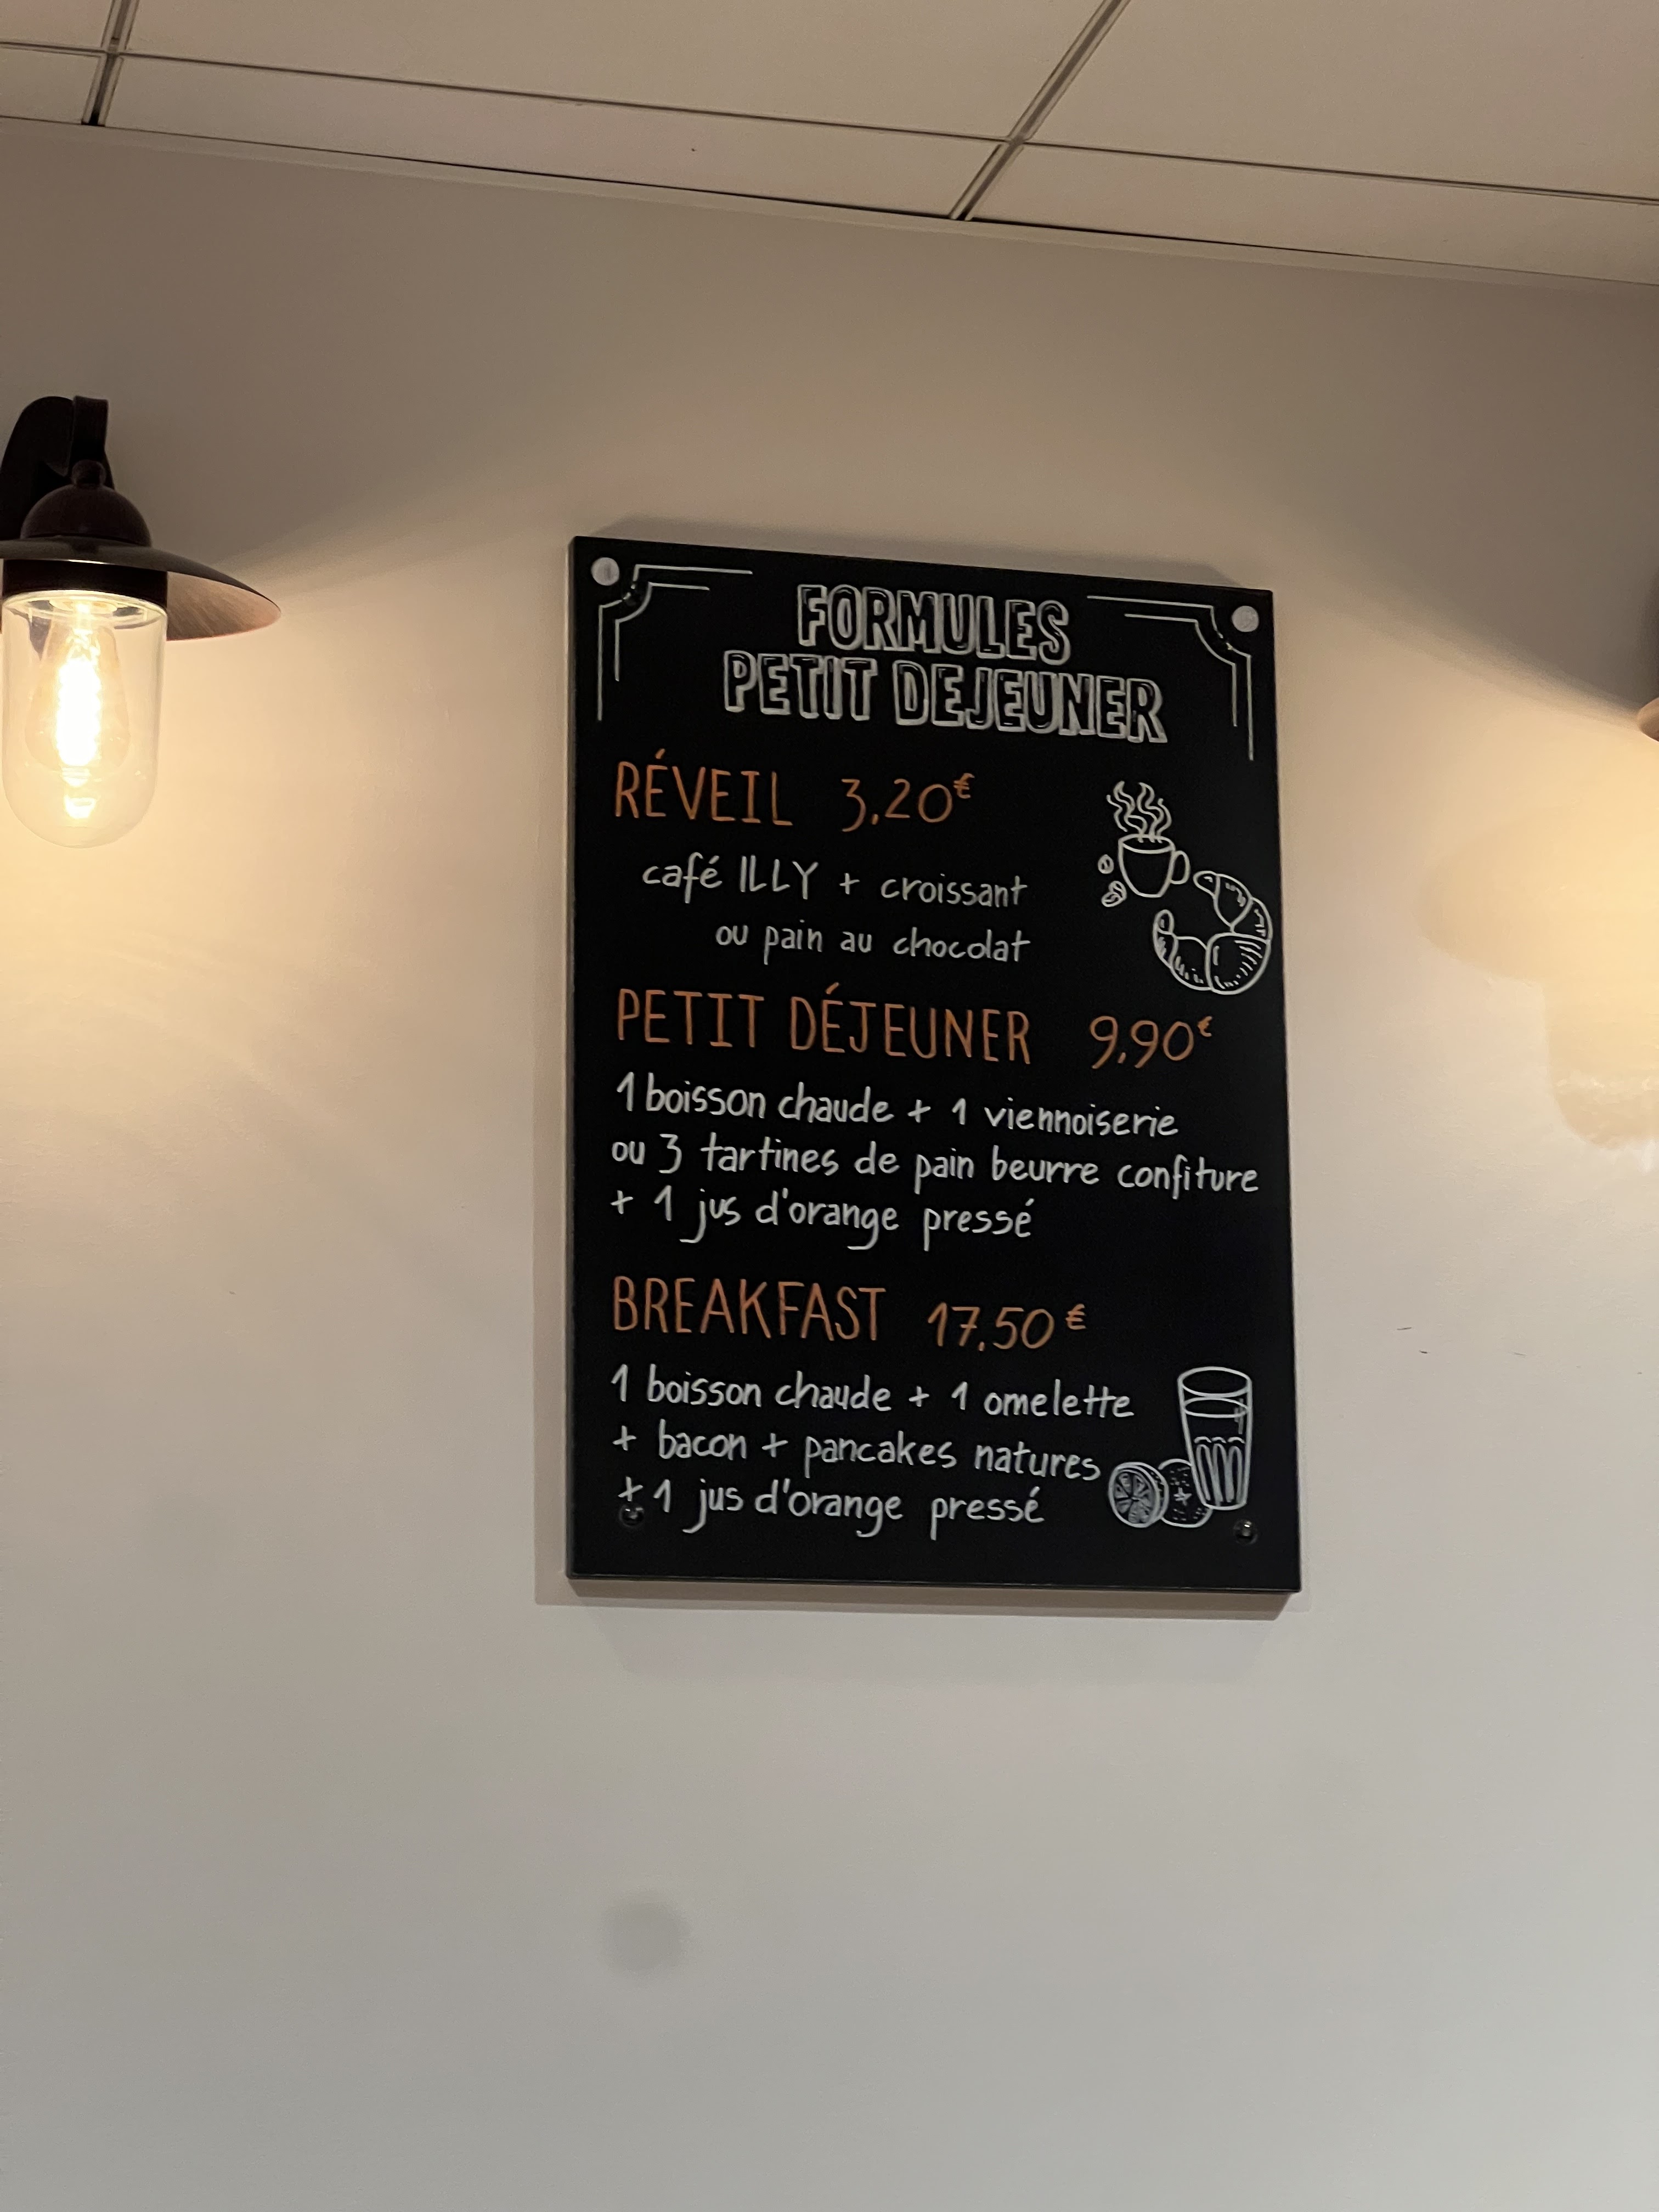 FORMULES
PETIT DEJEUNER
RÉVEIL 3,20€
café ILLY + croissant
ou pain au chocolat
PETIT DÉJEUNER 9,90€
1 boisson chaude + 1 viennoiserie
ou 3 tartines de pain beurre confiture
+ 1 jus d'orange pressé
BREAKFAST 17,50€
1 boisson chaude + 1 omelette
+ bacon + pancakes natures
+ 1 jus d'orange pressé